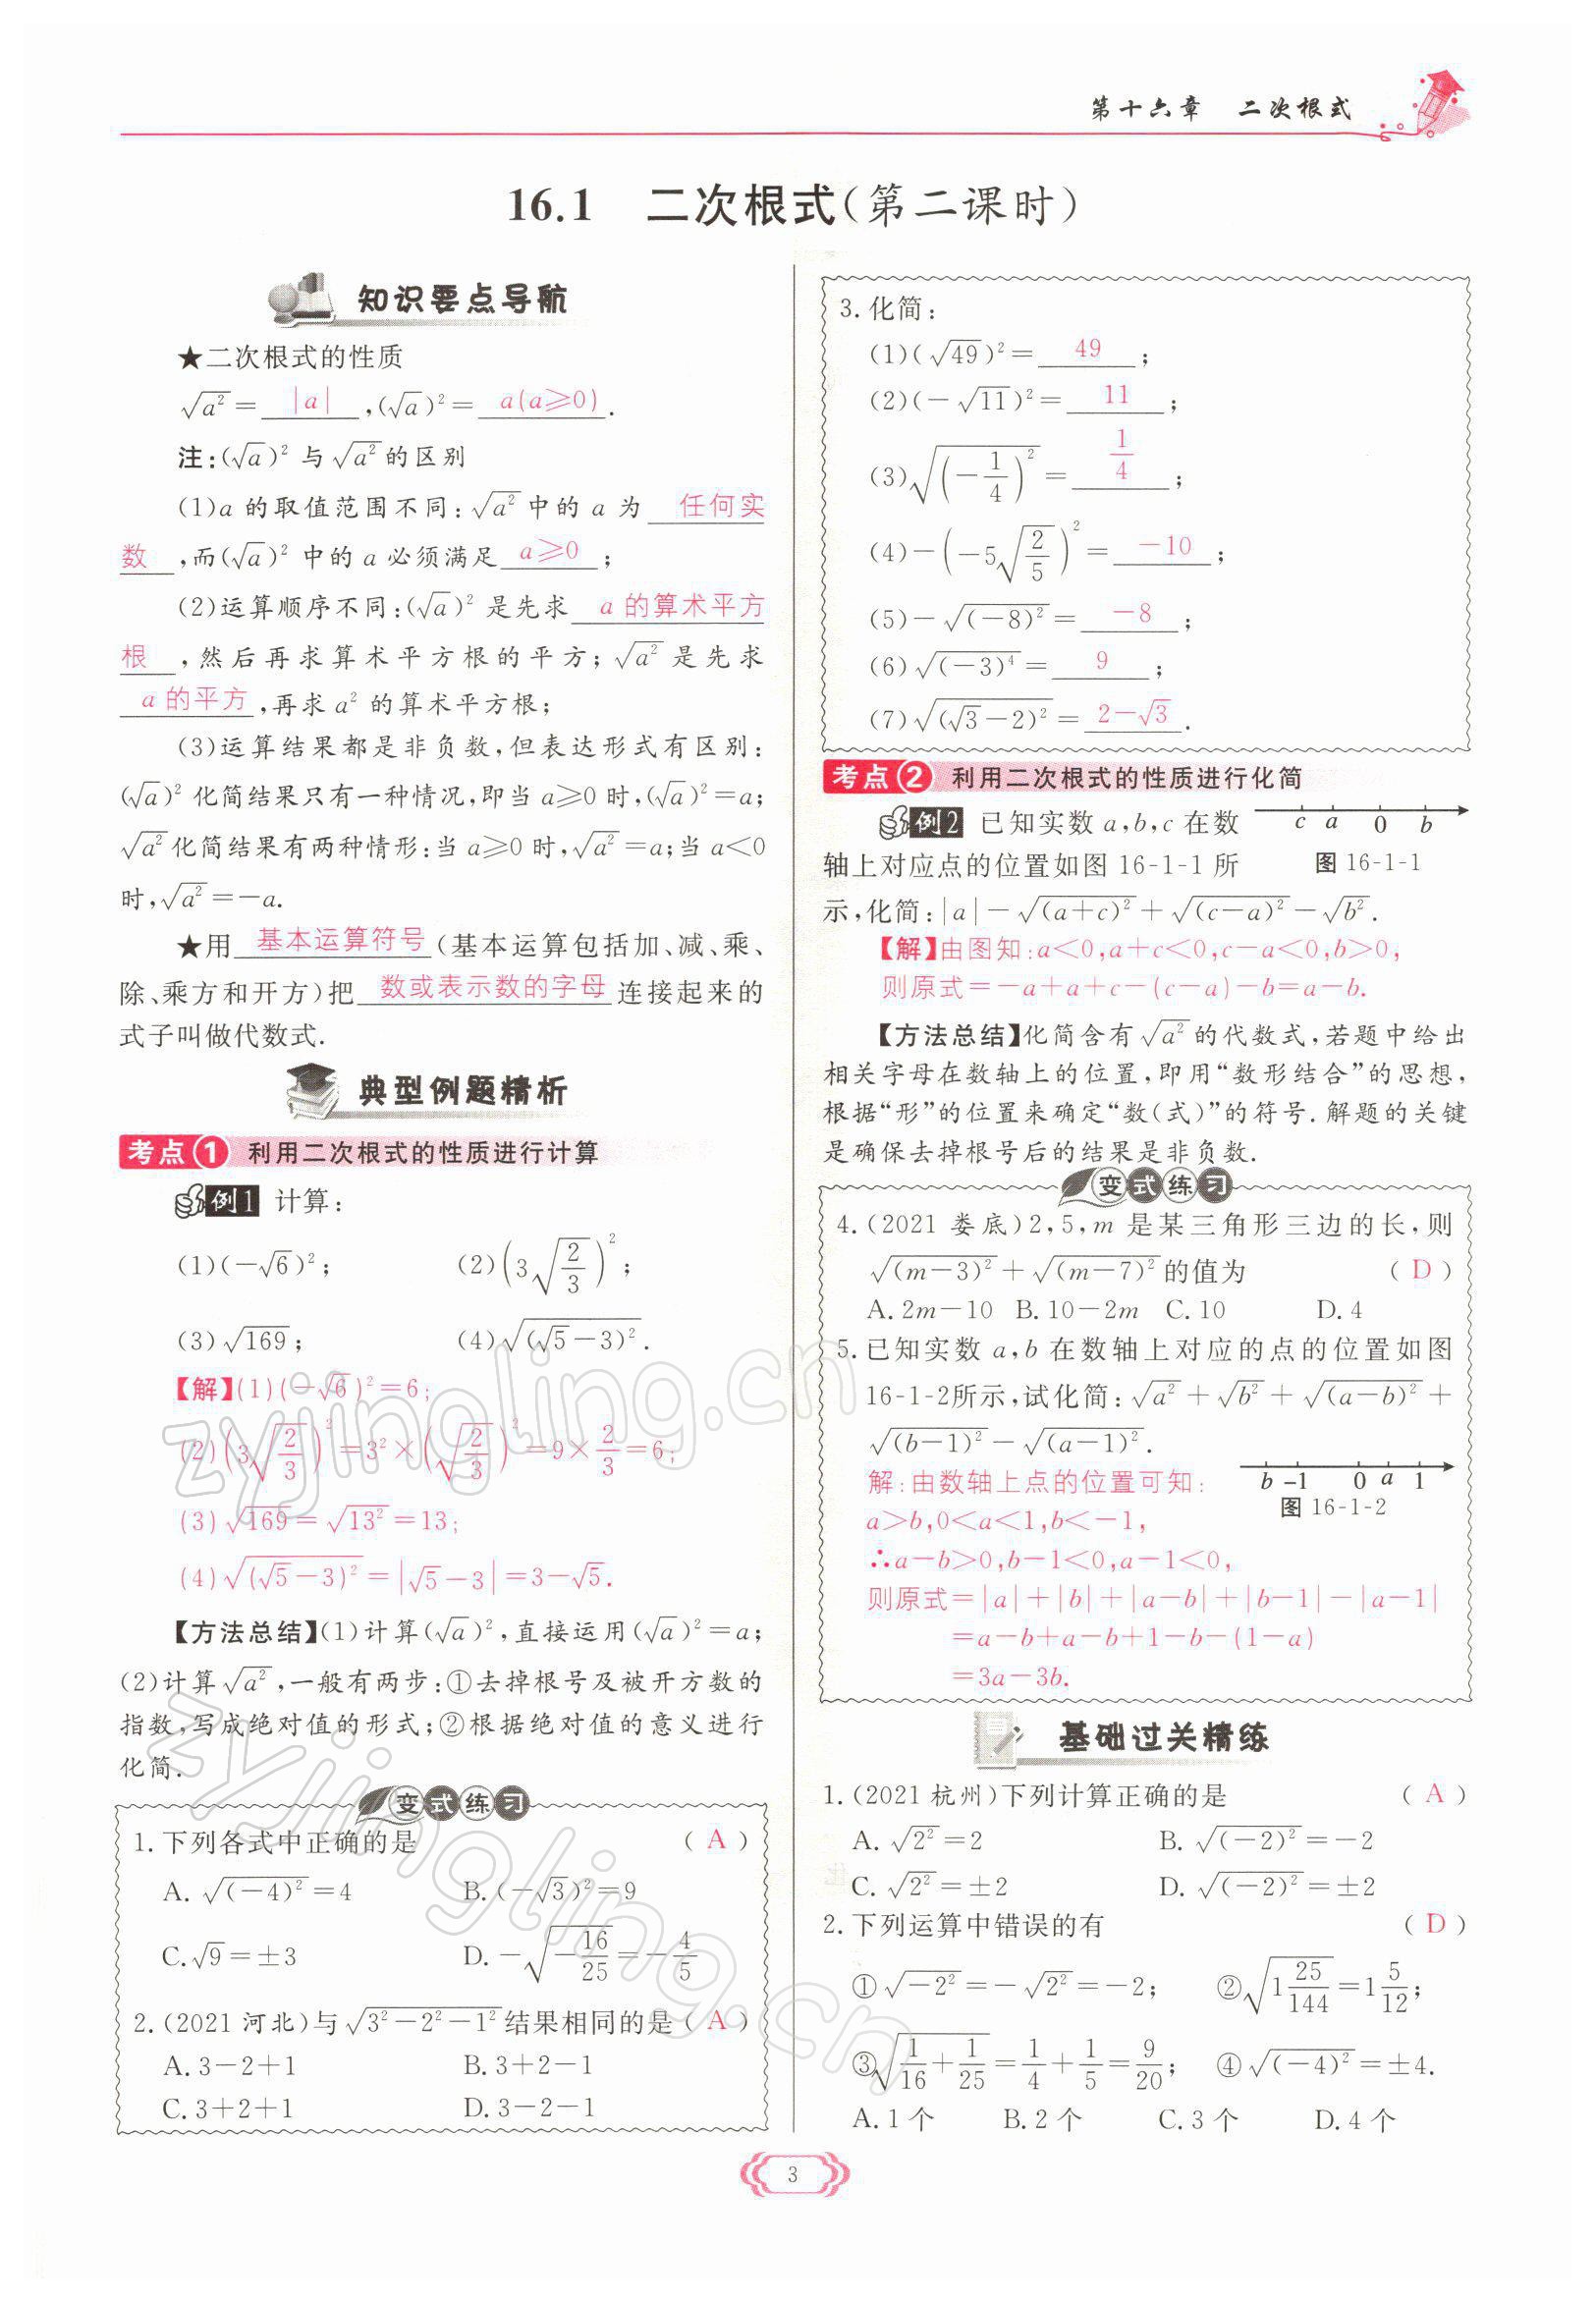 第十六章 二次根式
16.1 二次根式(第二课时)
知识要点导航
★二次根式的性质
√(a²)= |a| ,(√a)²= a(a≥0) .
注:(√a)²与√(a²)的区别
(1)a的取值范围不同:√(a²)中的a为 任何实
数 ,而(√a)²中的a必须满足 a≥0 ;
(2)运算顺序不同:(√a)²是先求 a的算术平方
根 ,然后再求算术平方根的平方;√(a²)是先求
a的平方 ,再求a²的算术平方根;
(3)运算结果都是非负数,但表达形式有区别:
(√a)²化简结果只有一种情况,即当a≥0时,(√a)²=a;
√(a²)化简结果有两种情形:当a≥0时,√(a²)=a;当a<0
时,√(a²)=-a.
★用 基本运算符号 (基本运算包括加、减、乘、
除、乘方和开方)把 数或表示数的字母 连接起来的
式子叫做代数式.
典型例题精析
考点1 利用二次根式的性质进行计算
例1 计算:
(1)(-√6)²; (2)(3√(2/3))²;
(3)√169; (4)√((√5-3)²).
【解】(1)(-√6)²=6;
(2)(3√(2/3))²=3²×(√(2/3))²=9×2/3=6;
(3)√169=√(13²)=13;
(4)√((√5-3)²)=|√5-3|=3-√5.
【方法总结】(1)计算(√a)²,直接运用(√a)²=a;
(2)计算√(a²),一般有两步:①去掉根号及被开方数的
指数,写成绝对值的形式;②根据绝对值的意义进行
化简.
变式练习
1.下列各式中正确的是 ( A )
A.√((-4)²)=4 B.(-√3)²=9
C.√9=±3 D.-√(-16/25)=-4/5
2.(2021河北)与√(3²-2²-1²)结果相同的是( A )
A.3-2+1 B.3+2-1
C.3+2+1 D.3-2-1
3.化简:
(1)(√49)²= 49 ;
(2)(-√11)²= 11 ;
(3)√((-1/4)²)= 1/4 ;
(4)-(-5√(2/5))²= -10 ;
(5)-√((-8)²)= -8 ;
(6)√((-3)⁴)= 9 ;
(7)√((√3-2)²)= 2-√3 .
考点2 利用二次根式的性质进行化简
例2 已知实数a,b,c在数
c a 0 b
轴上对应点的位置如图16-1-1所
图16-1-1
示,化简:|a|-√((a+c)²)+√((c-a)²)-√(b²).
【解】由图知:a<0,a+c<0,c-a<0,b>0,
则原式=-a+a+c-(c-a)-b=a-b.
【方法总结】化简含有√(a²)的代数式,若题中给出
相关字母在数轴上的位置,即用“数形结合”的思想,
根据“形”的位置来确定“数(式)”的符号.解题的关键
是确保去掉根号后的结果是非负数.
变式练习
4.(2021娄底)2,5,m是某三角形三边的长,则
√((m-3)²)+√((m-7)²)的值为 ( D )
A.2m-10 B.10-2m C.10 D.4
5.已知实数a,b在数轴上对应的点的位置如图
16-1-2所示,试化简:√(a²)+√(b²)+√((a-b)²)+
√((b-1)²)-√((a-1)²).
解:由数轴上点的位置可知:
b -1 0 a 1
图16-1-2
a>b,0<a<1,b<-1,
∴a-b>0,b-1<0,a-1<0,
则原式=|a|+|b|+|a-b|+|b-1|-|a-1|
=a-b+a-b+1-b-(1-a)
=3a-3b.
基础过关精练
1.(2021杭州)下列计算正确的是 ( A )
A.√(2²)=2 B.√((-2)²)=-2
C.√(2²)=±2 D.√((-2)²)=±2
2.下列运算中错误的有 ( D )
①√(-2²)=-√(2²)=-2; ②√(1 25/144)=1 5/12;
③√(1/16+1/25)=1/4+1/5=9/20; ④√((-4)²)=±4.
A.1个 B.2个 C.3个 D.4个
3
zyjingling.cn
zyjingling.cn